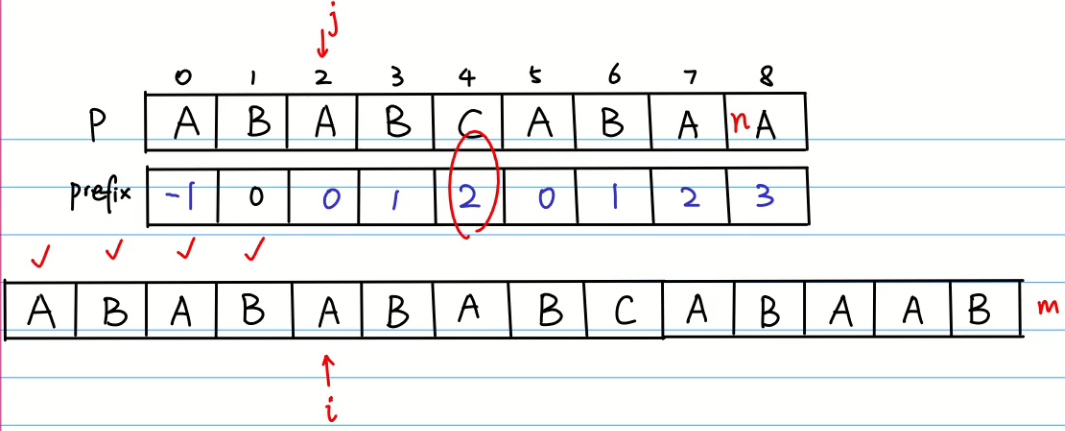 j
0 1 2 3 4 5 6 7 8
P A B A B C A B A n A
prefix -1 0 0 1 2 0 1 2 3
✓ ✓ ✓ ✓
A B A B A B A B C A B A A B m
i